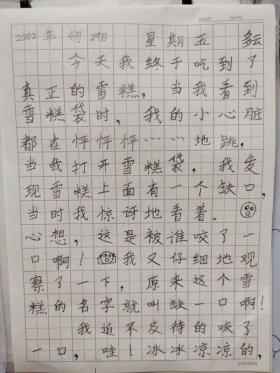 PAGE DATE
2022年4月29日 星期五 多云
今天我终于吃到了
真正的雪糕，当我看到
雪糕袋时，我的小心脏
都在怦怦怦……地跳，
当我打开雪糕袋。我发
现雪糕上面有一个缺口，
当时我惊讶地看着。
心想，这是被谁咬了一
口啊！我又仔细地观
察了一下，原来这个雪
糕的名字就叫缺一口啊！
我迫不及待的咬了
一口，哇！冰冰凉凉的，